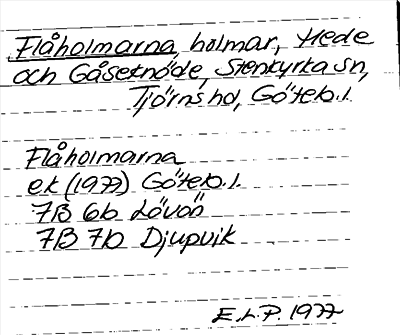 Flåholmarna, holmar, Hede
och Gåseknöde, Stenkyrka sn,
Tjörns hd, Göteb. l.
Flåholmarna
ek (1977) Göteb. l.
7B 6b Lövön
7B 7b Djupvik
E.L.P. 1977